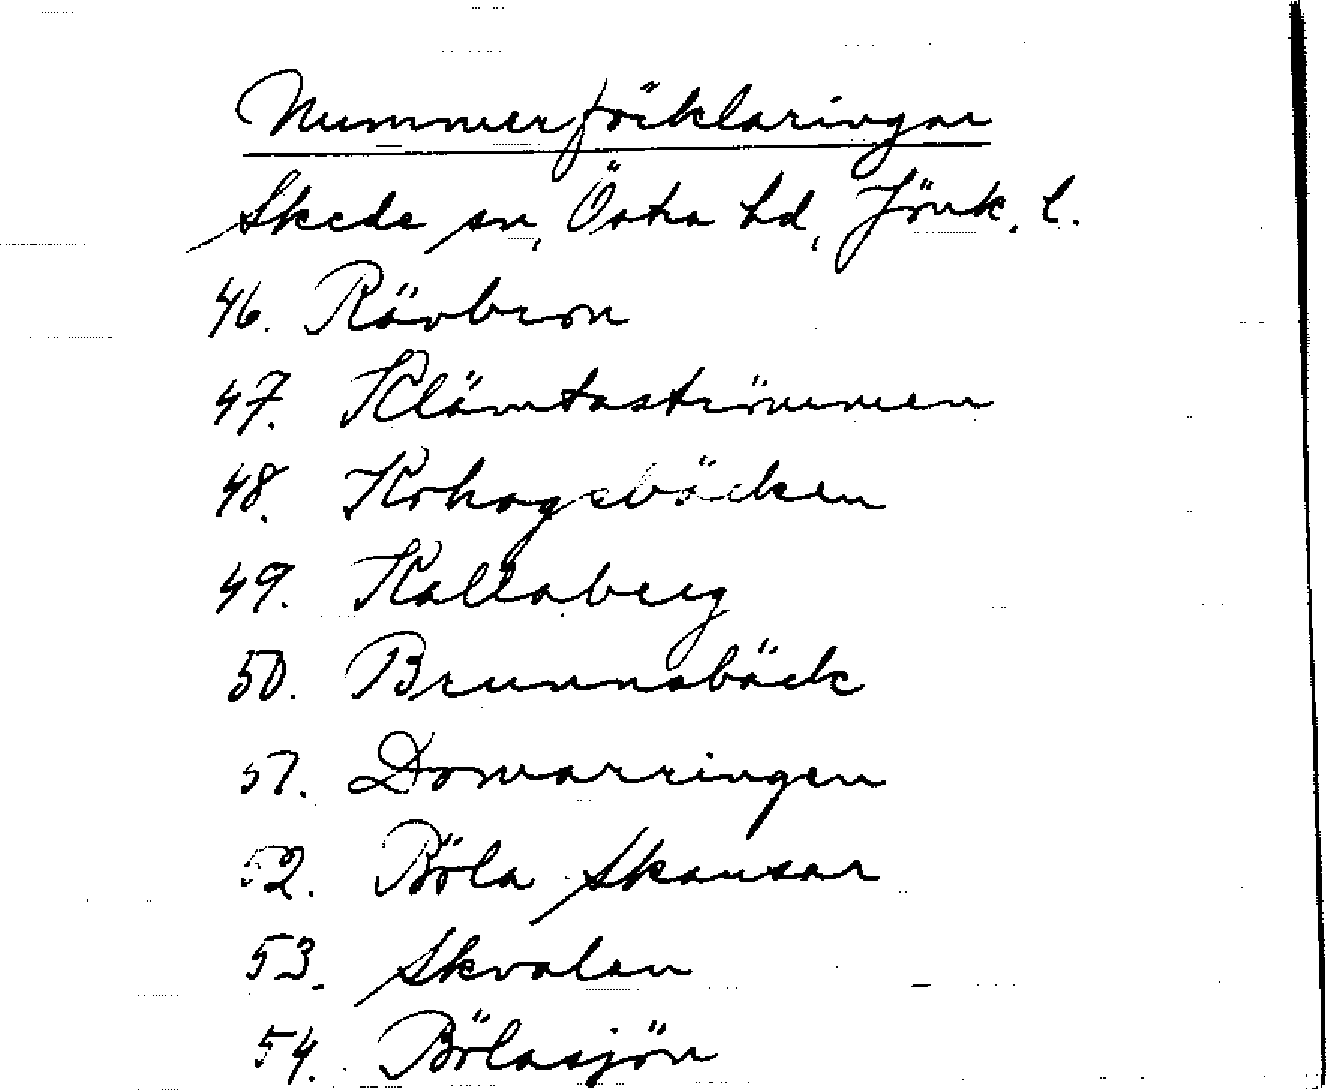 Nummerförklaringar
Skede sn, Östra hd, Jönk. l.
46. Rävbron
47. Klämtaströmmen
48. Kohagsbäcken
49. Kallaberg
50. Brunnsbäck
51. Domarringen
52. Böla Skansar
53. Skvalen
54. Bölasjön